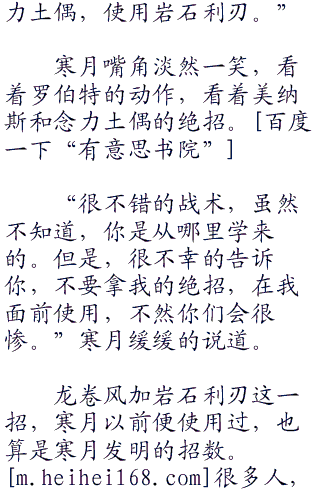 力土偶，使用岩石利刃。”
寒月嘴角淡然一笑，看
着罗伯特的动作，看着美纳
斯和念力土偶的绝招。[百度
一下“有意思书院”]
“很不错的战术，虽然
不知道，你是从哪里学来
的。但是，很不幸的告诉
你，不要拿我的绝招，在我
面前使用，不然你们会很
惨。”寒月缓缓的说道。
龙卷风加岩石利刃这一
招，寒月以前便使用过，也
算是寒月发明的招数。
[m.heihei168.com]很多人，